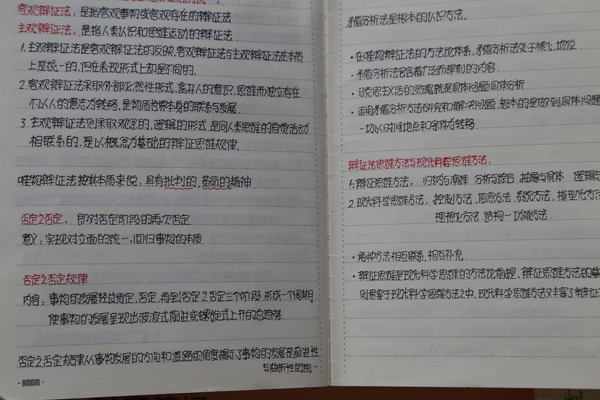 客观辩证法,是指客观事物或客观存在的辩证法
主观辩证法,是指人类认识和思维运动的辩证法
1.主观辩证法是客观辩证法的反映,客观辩证法与主观辩证法在本质
上是统一的,但在表现形式上却是不同的.
2.客观辩证法采取外部必然性形式,离开人的意识.思维而独立存在
不以人的意志为转移,是物质世界本身的联系与发展.
3.主观辩证法则采取观念的,逻辑的形式.是同人类思维的自觉活动
相联系的,是以概念为基础的辩证思维规律.
唯物辩证法按其本质来说,具有批判的,革命的精神
否定之否定,即对否定阶段的再次否定
意义:实现对立面的统一,回归事物的本质
否定之否定规律
内容:事物的发展经过肯定,否定,再到否定之否定三个阶段.形成一个周期
使事物的发展呈现出波浪式前进或螺旋式上升的总趋势.
否定之否定规律从事物发展的方向和道路的角度揭示了事物的发展是前进性
与曲折性的统一
BMOM
矛盾分析法是根本的认识方法.
·在唯物辩证法的方法论体系,矛盾分析法处于核心地位
·矛盾分析法包含着广泛而深刻的内容.
·马克思主义活的灵魂就是具体问题具体分析
·运用矛盾分析方法研究和解决问题,根本的是做到具体问题
一切以时间地点和条件为转移.
辩证法思维方法与现代科学思维方法.
1.辩证思维方法:归纳与演绎 分析与综合 抽象与具体 逻辑与
2.现代科学思维方法:控制方法.信息方法.系统方法.模型化方法
理想化方法.结构—功能方法
·两种方法相互联系,相互补充
·辩证思维是现代科学思维的方法论前提,辩证思维方法的基
则贯穿于现代科学思维方法之中.现代科学思维方法又丰富了